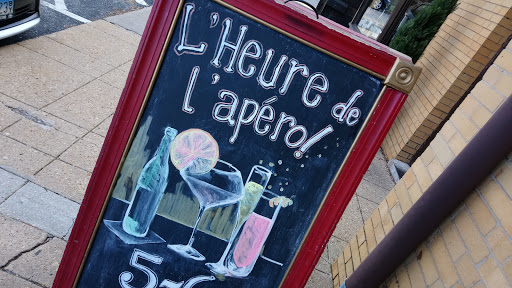 L'Heure de
l'apéro!
5-6